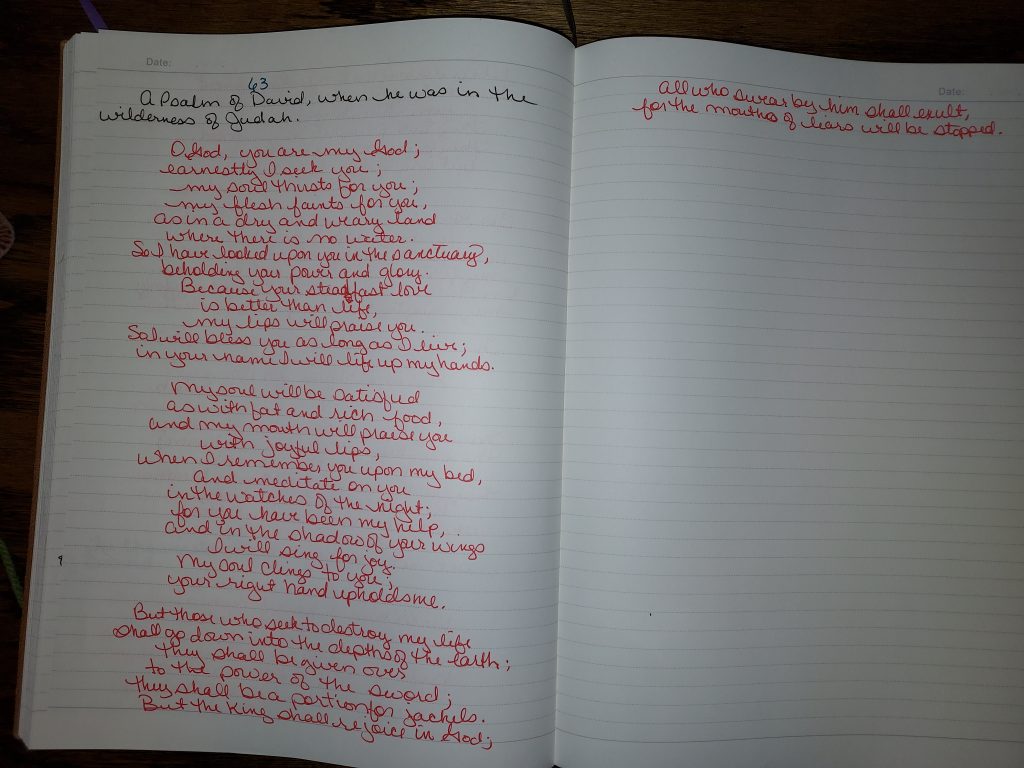 Date:
63
A Psalm of David, when he was in the
wilderness of Judah.
O God, you are my God;
earnestly I seek you;
my soul thirsts for you;
my flesh faints for you,
as in a dry and weary land
where there is no water.
So I have looked upon you in the sanctuary,
beholding your power and glory.
Because your steadfast love
is better than life,
my lips will praise you.
So I will bless you as long as I live;
in your name I will lift up my hands.
My soul will be satisfied
as with fat and rich food,
and my mouth will praise you
with joyful lips,
when I remember you upon my bed,
and meditate on you
in the watches of the night;
for you have been my help,
and in the shadow of your wings
I will sing for joy.
My soul clings to you;
your right hand upholds me.
But those who seek to destroy my life
shall go down into the depths of the earth;
they shall be given over
to the power of the sword;
they shall be a portion for jackels.
But the king shall rejoice in God;
Date:
all who swear by him shall exult,
for the mouths of liars will be stopped.